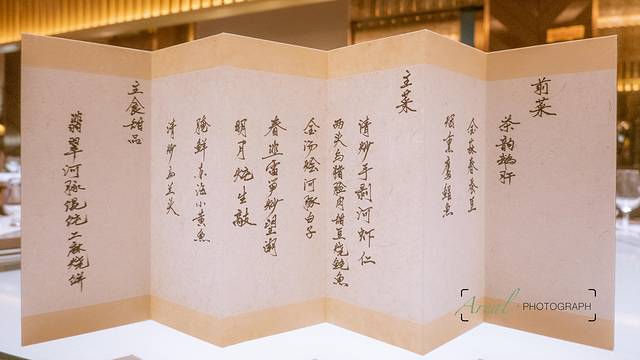 前菜
茶韵鹅肝
金蒜春蚕豆
熏鹰鲳鱼
主菜
清炒手剥河虾仁
两头乌猪脸肉甜豆烧鲍鱼
金汤烩河豚白子
春韭雷笋炒望潮
明月炖生敲
腌鲜东海小黄鱼
清炒马兰头
主食甜品
翡翠河豚馄饨 二麻烧饼
PHOTOGRAPH